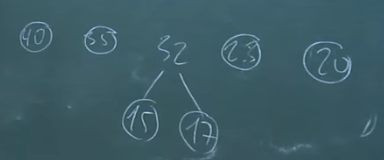 40 35 32 23 20
15 17